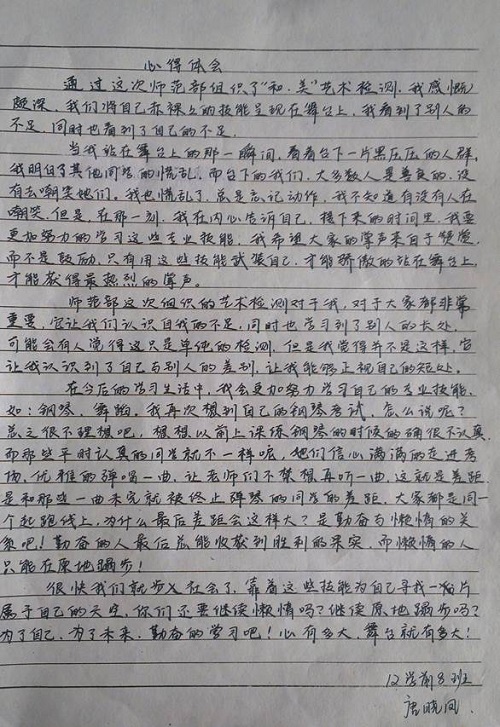 心得体会
通过这次师范部组织了"和·美"艺术检测,我感慨
颇深,我们将自己赤裸上的技能呈现在舞台上,我看到了别人的
不足,同时也看到了自己的不足.
当我站在舞台上的那一瞬间,看着台下一片黑压压的人群,
我明白了其他同学的慌乱,而台下的我们,大多数人是善良的,没
有去嘲笑她们。我也慌乱了,总是忘记动作,我不知道有没有人在
嘲笑,但是,在那一刻,我在内心告诉自己,接下来的时间里,我要
更加努力的学习这些专业技能,我希望大家的掌声来自于赞赏,
而不是鼓励,只有用这些技能武装自己,才能骄傲的站在舞台上,
才能获得最热烈的掌声。
师范部这次组织的艺术检测对于我,对于大家都非常
重要,它让我们认识自我的不足,同时也学习到了别人的长处,
可能会有人觉得这只是单纯的检测,但是我觉得并不是这样,它
让我认识到了自己与别人的差别,让我能够正视自己的短处.
在今后的学习生活中,我会更加努力学习自己的专业技能,
如:钢琴、舞蹈。我再次想到自己的钢琴考试,怎么说呢?
总之很不理想吧,想想以前上课练钢琴的时候的确很不认真,
而那些平时认真的同学就不一样呢,她们信心满满的走进考
场,优雅的弹唱一曲,让老师们不禁想再听一曲,这就是差距,
是和那些一曲未完就被终止弹琴的同学的差距,大家都是同一
个起跑线上,为什么最后差距会这样大?是勤奋与懒惰的关
系吧!勤奋的人最后总能收获到胜利的果实,而懒惰的人
只能在原地踏步!
很快我们就步入社会了,靠着这些技能为自己寻找一片
属于自己的天空,你们还要继续懒惰吗?继续原地踏步吗?
为了自己,为了未来,勤奋的学习吧!心有多大,舞台就有多大!
12学前8班
唐晓凤.